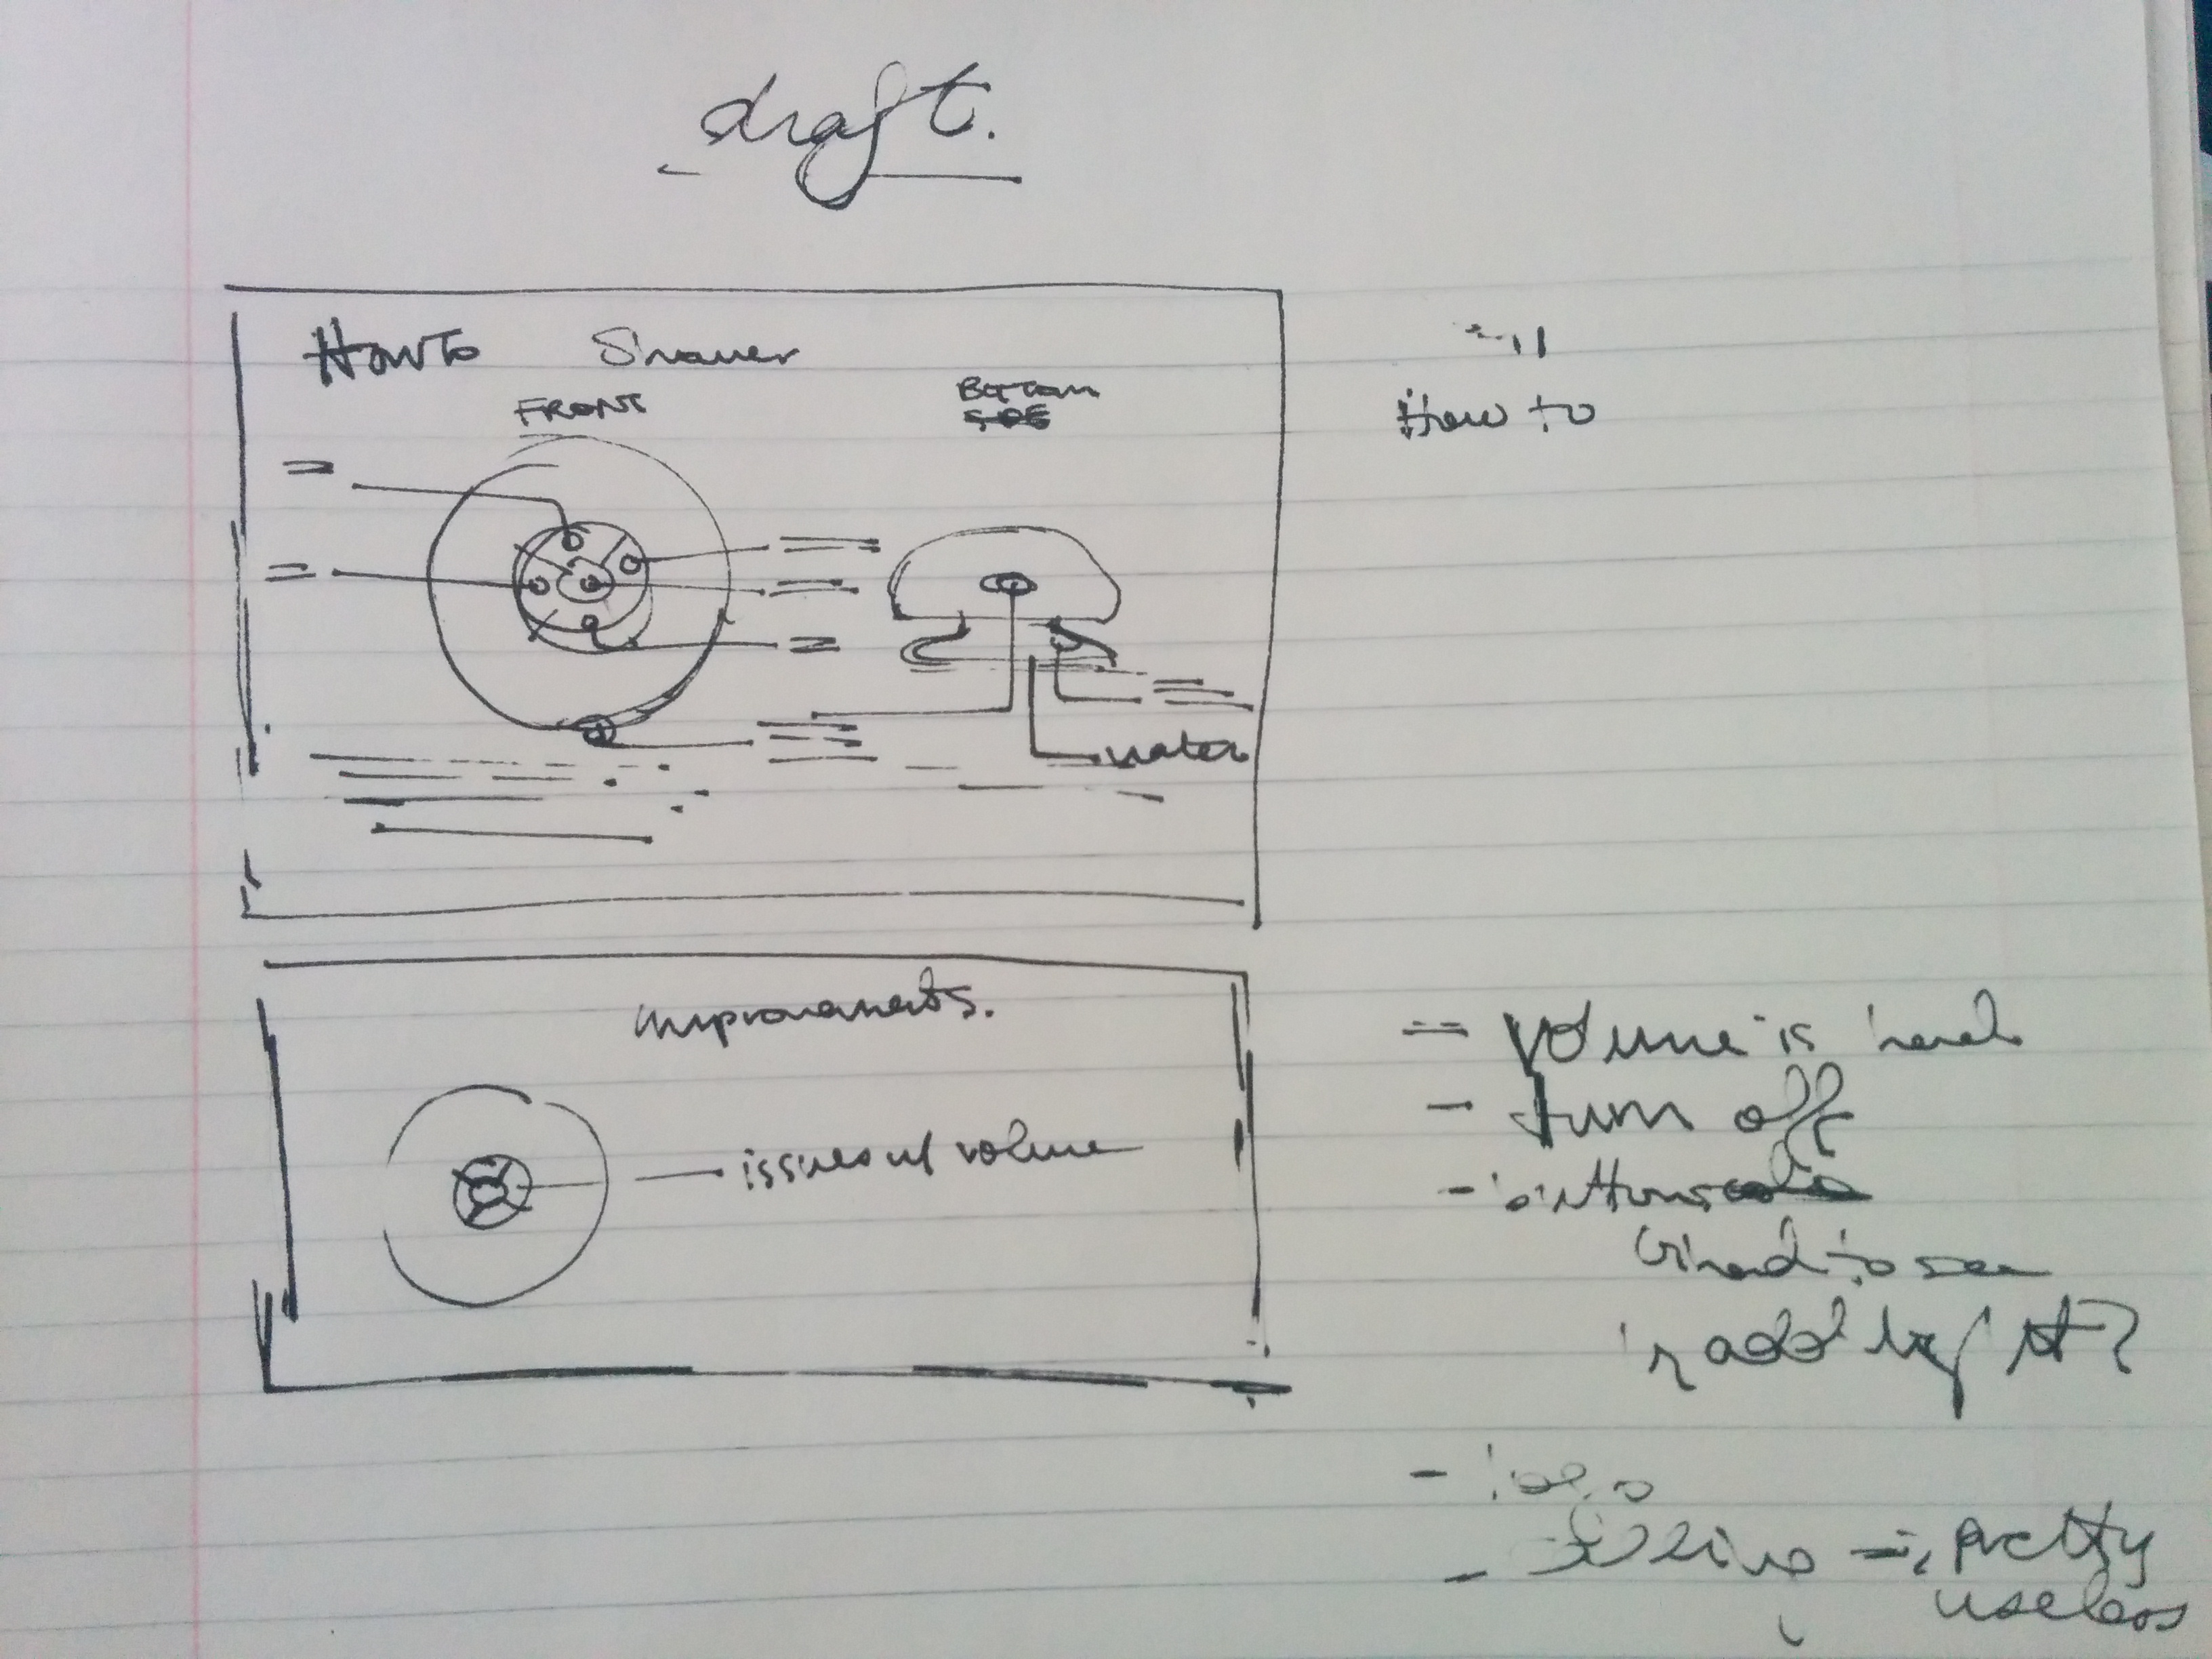 draft.
How to Shower
FRONT
BOTTOM
SIDE
How to
water
improvements.
issues w/ volume
- volume is hard
- turn off
- buttons
hard to see
add light?
- logo
- pretty
useless